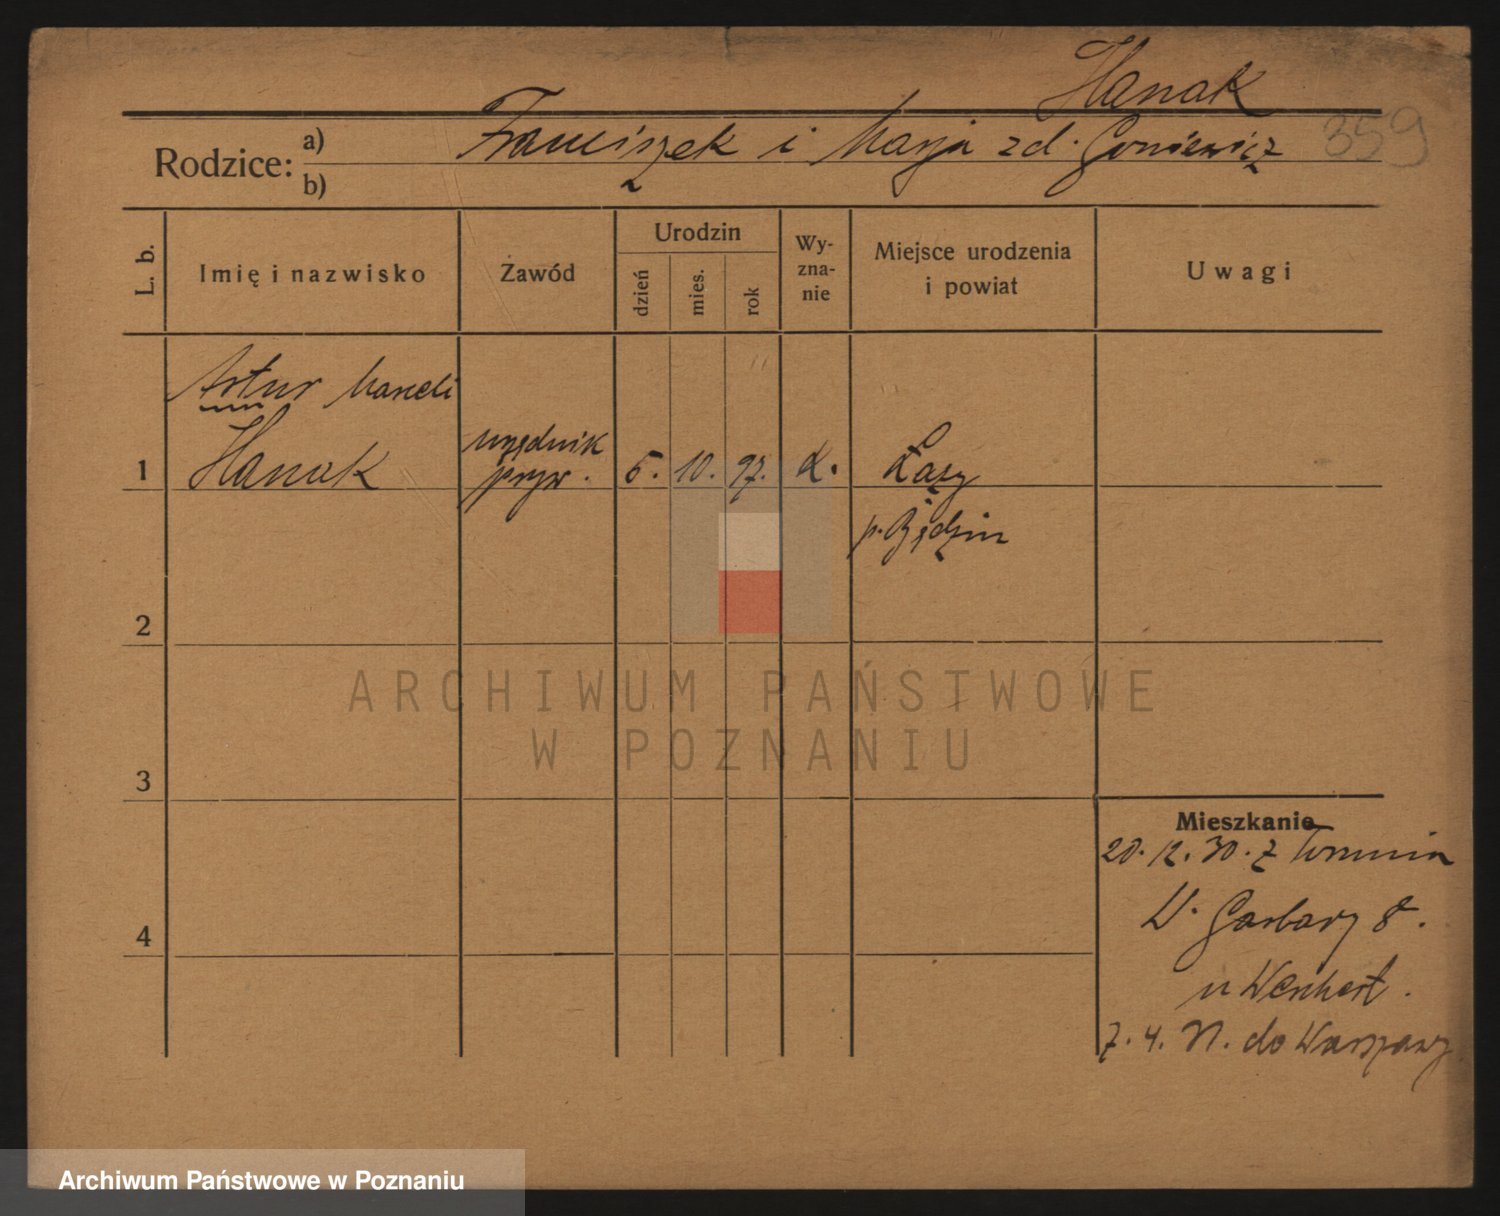 Hanak
359
Rodzice: a) Franciszek i Marja zd. Goniewicz
b)
L. b.
Imię i nazwisko
Zawód
Urodzin
dzień
mies.
rok
Wy-
zna-
nie
Miejsce urodzenia
i powiat
Uwagi
Artur Marceli
1 Hanak
urzędnik
pryw.
5. 10. 97. k.
Łazy
p. Będzin
2
3
4
Mieszkanie
20. 12. 30. z Torunia
W. Garbary 8.
u
7. 4. 31. do Warszawy
ARCHIWUM PAŃSTWOWE
W POZNANIU
Archiwum Państwowe w Poznaniu